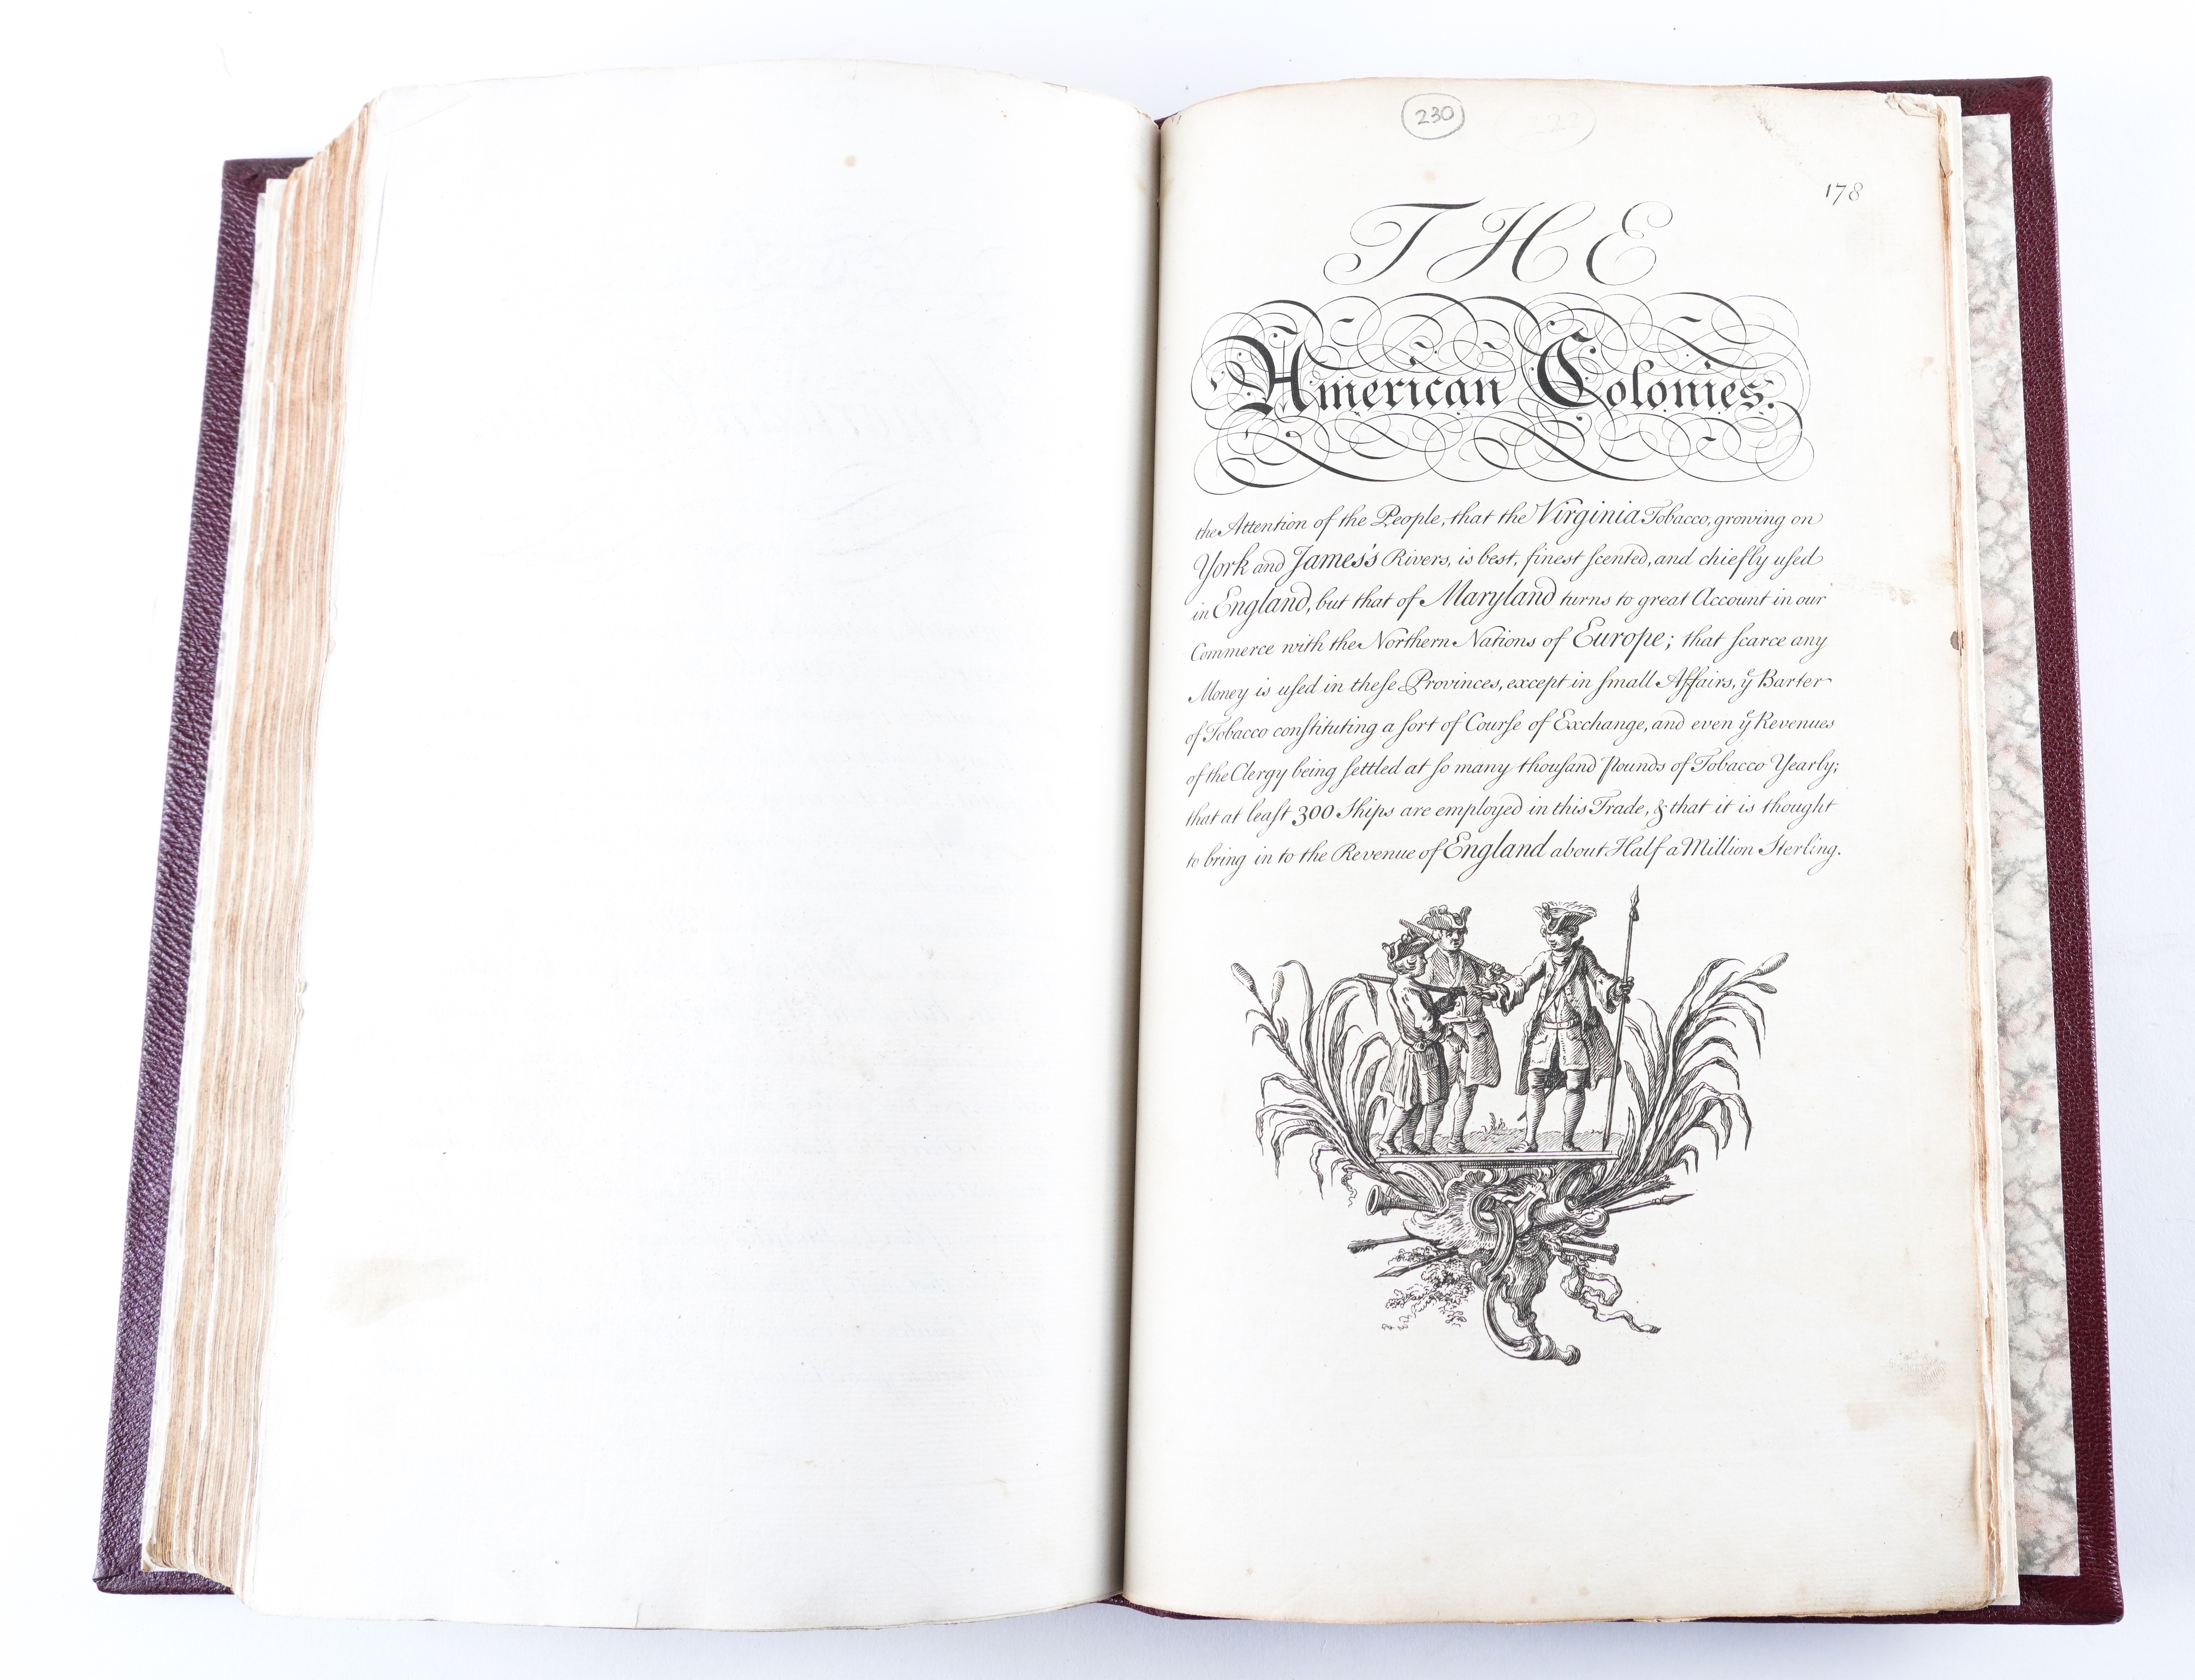 230
178
THE
American Colonies.
the Attention of the People, that the Virginia Tobacco, growing on
York and James's Rivers, is best, finest ſcented, and chiefly uſed
in England, but that of Maryland turns to great Account in our
Commerce with the Northern Nations of Europe; that ſcarce any
Money is uſed in theſe Provinces, except in ſmall Affairs, yͤ Barter
of Tobacco conſtituting a ſort of Courſe of Exchange, and even yͤ Revenues
of the Clergy being ſettled at ſo many thouſand Pounds of Tobacco Yearly;
that at leaſt 300 Ships are employed in this Trade, & that it is thought
to bring in to the Revenue of England about Half a Million Sterling.